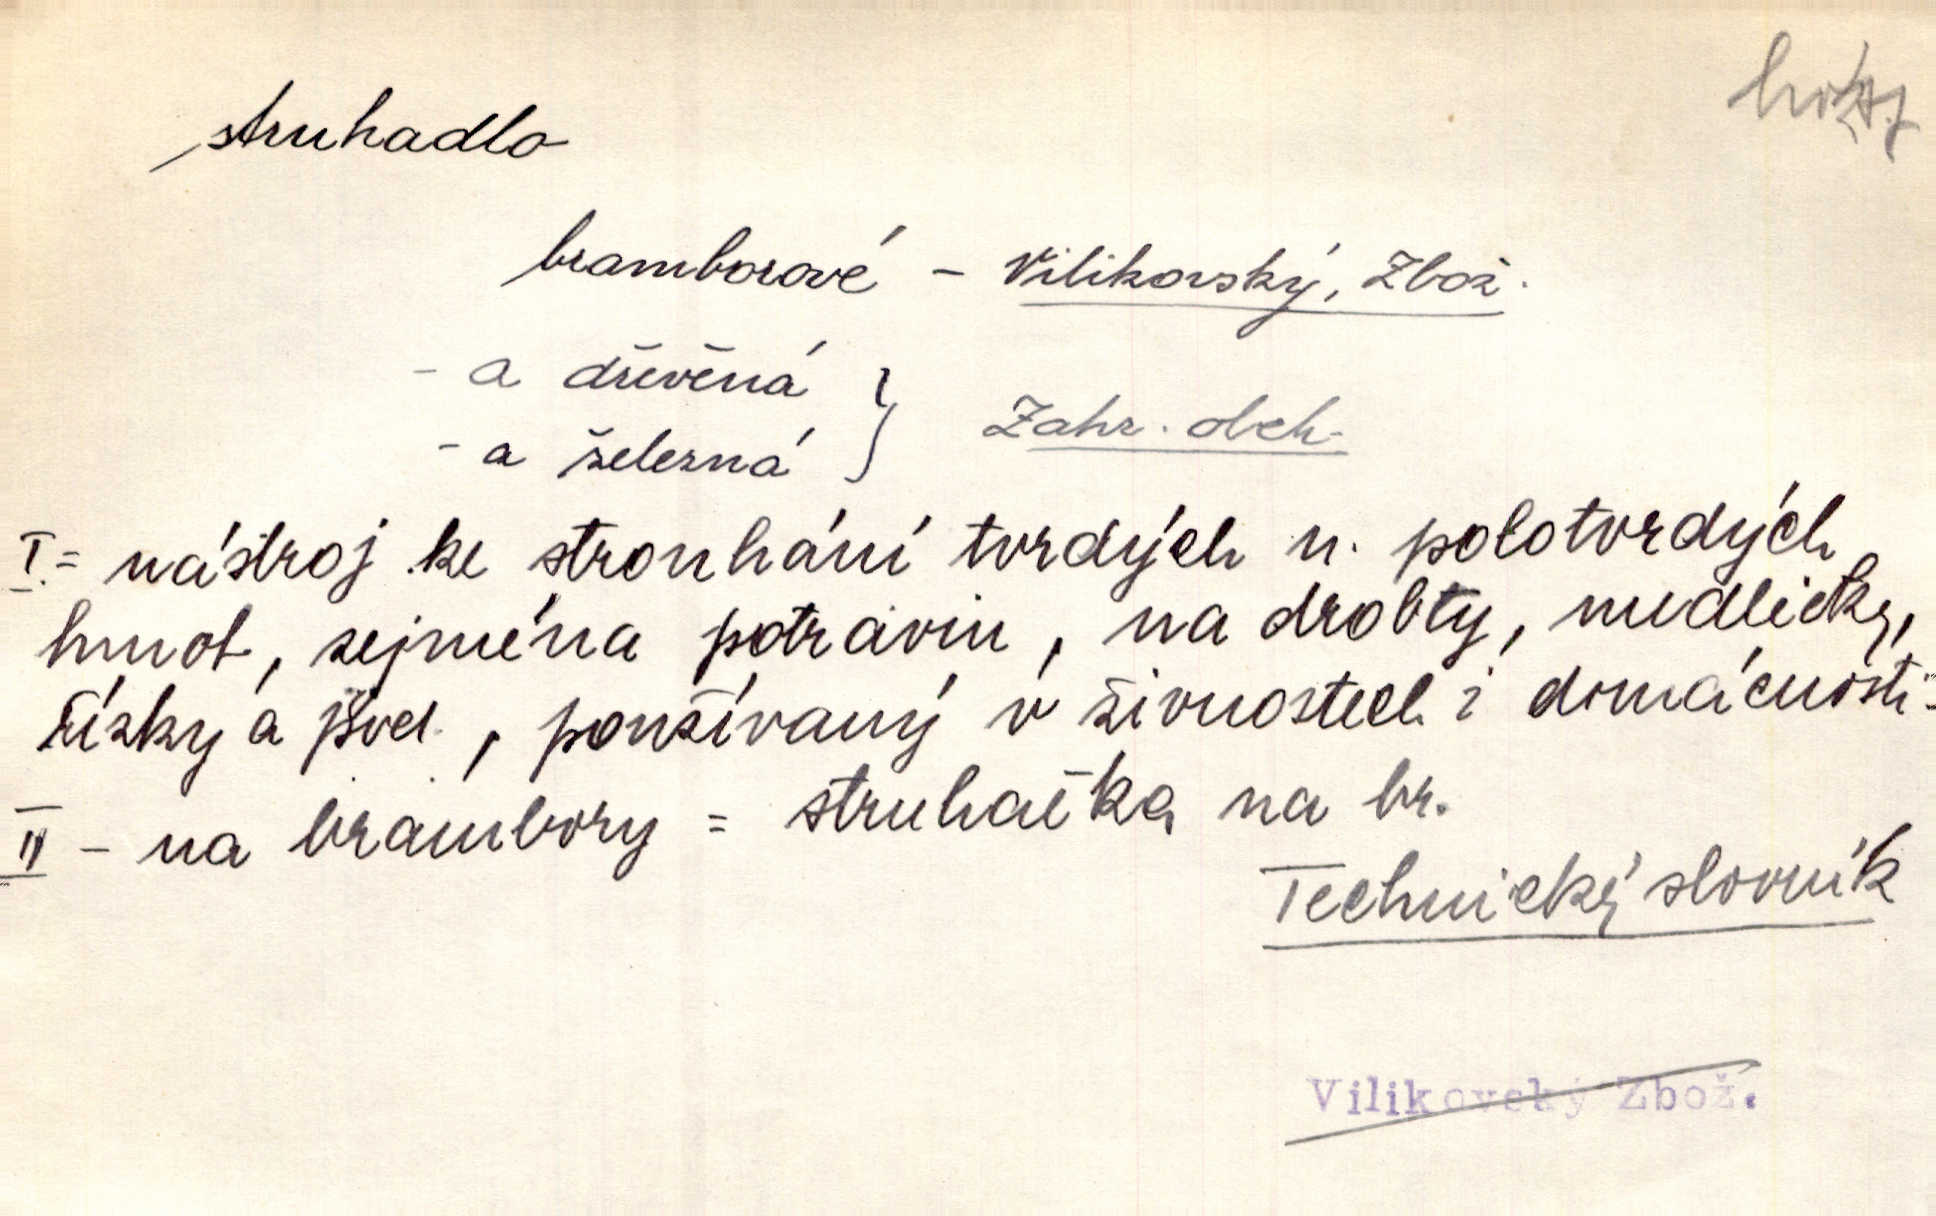 struhadlo
bramborové - Vilikovský, Zbož.
- a dřevěná
- a železná } Zahr. obch.
I. = nástroj ke strouhání tvrdých n. polotvrdých
hmot, zejména potravin, na drobty, nudličky,
řízky a pod., používaný v živnostech i domácnosti -
II - na brambory = struhačka na br.
Technický slovník
Vilikovský Zbož.